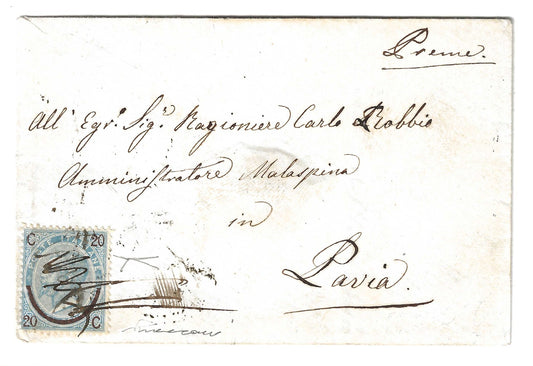 Preme.
All' Egr. Sigr. Ragioniere Carlo Robbio
Amministratore Malaspina
in
Pavia.
C 20
20 C